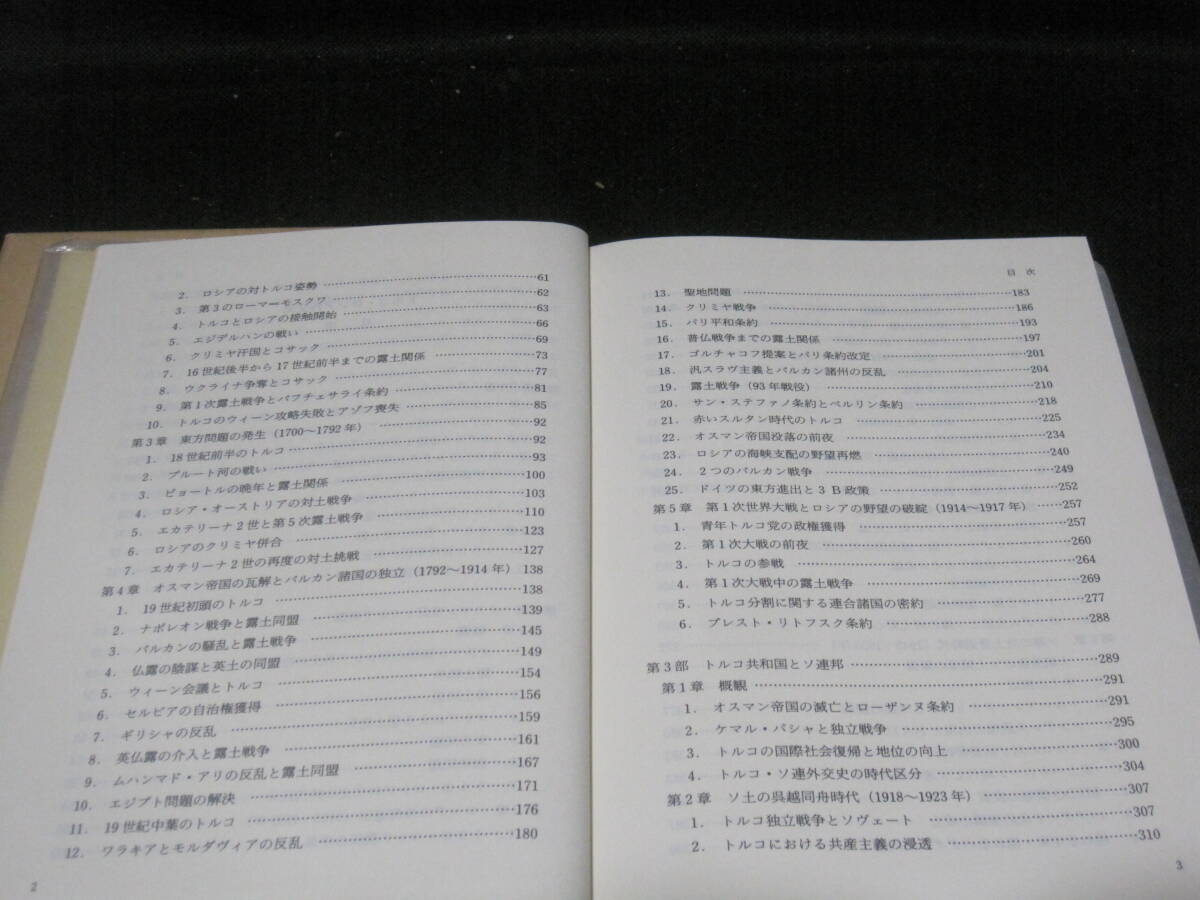 2. ロシアの対トルコ姿勢 ……61
3. 第3のローマーモスクワ ……62
4. トルコとロシアの接触開始 ……63
5. エジデルハンの戦い ……66
6. クリミヤ汗国とコサック ……69
7. 16世紀後半から17世紀前半までの露土関係 ……73
8. ウクライナ争奪とコサック ……77
9. 第1次露土戦争とバフチェサライ条約 ……81
10. トルコのウィーン攻略失敗とアゾフ喪失 ……85
第3章 東方問題の発生(1700〜1792年) ……92
1. 18世紀前半のトルコ ……92
2. プルート河の戦い ……93
3. ピョートルの晩年と露土関係 ……100
4. ロシア・オーストリアの対土戦争 ……103
5. エカテリーナ2世と第5次露土戦争 ……110
6. ロシアのクリミヤ併合 ……123
7. エカテリーナ2世の再度の対土挑戦 ……127
第4章 オスマン帝国の瓦解とバルカン諸国の独立(1792〜1914年) 138
1. 19世紀初頭のトルコ ……138
2. ナポレオン戦争と露土同盟 ……139
3. バルカンの騒乱と露土戦争 ……145
4. 仏露の陰謀と英土の同盟 ……149
5. ウィーン会議とトルコ ……154
6. セルビアの自治権獲得 ……156
7. ギリシャの反乱 ……159
8. 英仏露の介入と露土戦争 ……161
9. ムハンマド・アリの反乱と露土同盟 ……167
10. エジプト問題の解決 ……171
11. 19世紀中葉のトルコ ……176
12. ワラキアとモルダヴィアの反乱 ……180
2
目次
13. 聖地問題 ……183
14. クリミヤ戦争 ……186
15. パリ平和条約 ……193
16. 普仏戦争までの露土関係 ……197
17. ゴルチャコフ提案とパリ条約改定 ……201
18. 汎スラヴ主義とバルカン諸州の反乱 ……204
19. 露土戦争(93年戦役) ……210
20. サン・ステファノ条約とベルリン条約 ……218
21. 赤いスルタン時代のトルコ ……225
22. オスマン帝国没落の前夜 ……234
23. ロシアの海峡支配の野望再燃 ……240
24. 2つのバルカン戦争 ……249
25. ドイツの東方進出と3B政策 ……252
第5章 第1次世界大戦とロシアの野望の破綻(1914〜1917年) ……257
1. 青年トルコ党の政権獲得 ……257
2. 第1次大戦の前夜 ……260
3. トルコの参戦 ……264
4. 第1次大戦中の露土戦争 ……269
5. トルコ分割に関する連合諸国の密約 ……277
6. ブレスト・リトフスク条約 ……288
第3部 トルコ共和国とソ連邦 ……289
第1章 概観 ……291
1. オスマン帝国の滅亡とローザンヌ条約 ……291
2. ケマル・パシャと独立戦争 ……295
3. トルコの国際社会復帰と地位の向上 ……300
4. トルコ・ソ連外交史の時代区分 ……304
第2章 ソ土の呉越同舟時代(1918〜1923年) ……307
1. トルコ独立戦争とソヴェート ……307
2. トルコにおける共産主義の浸透 ……310
3